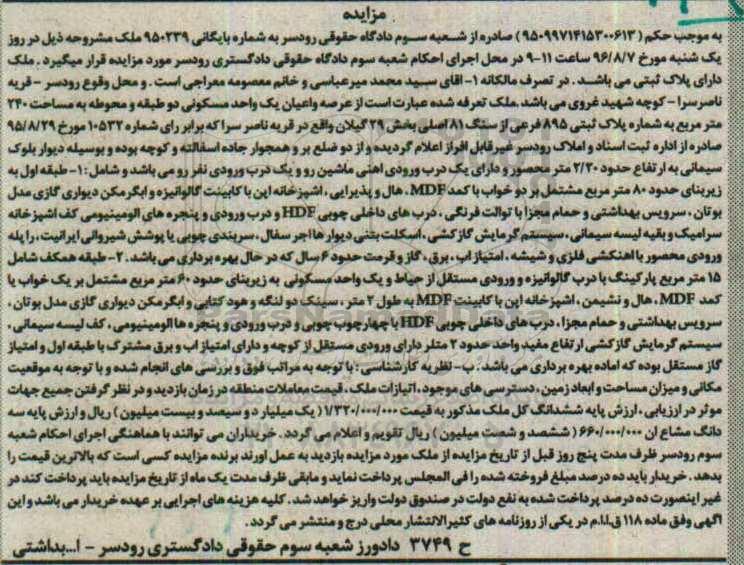 مزایده
به موجب حکم (۹۵۰۹۹۷۱۴۱۵۳۰۰۶۱۳) صادره از شعبه سوم دادگاه حقوقی رودسر به شماره بایگانی ۹۵۰۲۳۹ ملک مشروحه ذیل در روز
یک شنبه مورخ ۹۶/۸/۷ ساعت ۱۱-۹ در محل اجرای احکام شعبه سوم دادگاه حقوقی دادگستری رودسر مورد مزایده قرار میگیرد. ملک
دارای پلاک ثبتی می باشد. در تصرف مالکانه ۱- اقای سید محمد میرعباسی و خانم معصومه معراجی است. و محل وقوع رودسر - قریه
ناصرسرا - کوچه شهید غروی می باشد. ملک تعرفه شده عبارت است از عرصه واعیان یک واحد مسکونی دو طبقه و محوطه به مساحت ۲۴۰
متر مربع به شماره پلاک ثبتی ۸۹۵ فرعی از سنگ ۸۱ اصلی بخش ۲۹ گیلان واقع در قریه ناصر سرا که برابر رای شماره ۱۰۵۳۲ مورخ ۹۵/۸/۲۹
صادره از اداره ثبت اسناد و املاک رودسر غیر قابل افراز اعلام گردیده و از دو ضلع بر و همجوار جاده اسفالته و کوچه بوده و بوسیله دیوار بلوک
سیمانی به ارتفاع حدود ۲/۲۰ متر محصور و دارای یک درب ورودی اهنی ماشین رو و یک درب ورودی نفر رو می باشد و شامل: ۱- طبقه اول به
زیربنای حدود ۸۰ متر مربع مشتمل بر دو خواب با کمد MDF، هال و پذیرایی، اشپزخانه اپن با کابینت گالوانیزه و ابگرمکن دیواری گازی مدل
بوتان، سرویس بهداشتی و حمام مجزا با توالت فرنگی، درب های داخلی چوبی HDF و درب ورودی و پنجره های الومینیومی کف اشپزخانه
سرامیک و بقیه لیسه سیمانی، سیستم گرمایش گازکشی، اسکلت بتنی دیوارها اجر سفال، سربندی چوبی با پوشش شیروانی ایرانیت، را پله
ورودی محصور با اهنکشی فلزی و شیشه، امتیاز اب، برق، گاز و قرمت حدود ۶ سال که در حال بهره برداری می باشد. ۲- طبقه همکف شامل
۱۵ متر مربع پارکینگ با درب گالوانیزه و ورودی مستقل از حیاط و یک واحد مسکونی به زیربنای حدود ۶۰ متر مربع مشتمل بر یک خواب با
کمد MDF، هال و نشیمن، اشپزخانه اپن با کابینت MDF به طول ۲ متر، سینک دو لنگه و هود کتابی و ابگرمکن دیواری گازی مدل بوتان،
سرویس بهداشتی و حمام مجزا، درب های داخلی چوبی HDF با چهارچوب چوبی و درب ورودی و پنجره ها الومینیومی، کف لیسه سیمانی،
سیستم گرمایش گازکشی ارتفاع مفید واحد حدود ۲ متلر دارای ورودی مستقل از کوچه و دارای امتیاز اب و برق مشترک با طبقه اول و امتیاز
گاز مستقل بوده که اماده بهره برداری می باشد. ب- نظریه کارشناسی: با توجه به مراتب فوق و بررسی های انجام شده و با توجه به موقعیت
مکانی و میزان مساحت و ابعاد زمین، دسترسی های موجود، اتیازات ملک، قیمت معاملات منطقه در زمان بازدید و در نظر گرفتن جمیع جهات
موثر در ارزیابی، ارزش پایه ششدانگ کل ملک مذکور به قیمت ۱/۳۲۰/۰۰۰/۰۰۰ (یک میلیارد و سیصد و بیست میلیون) ریال و ارزش پایه سه
دانگ مشاع ان ۶۶۰/۰۰۰/۰۰۰ (ششصد و شصت میلیون) ریال تقویم و اعلام می گردد. خریداران می توانند با هماهنگی اجرای احکام شعبه
سوم رودسر ظرف مدت پنج روز قبل از تاریخ مزایده از ملک مورد مزایده بازدید به عمل اورند برنده مزایده کسی است که بالاترین قیمت را
بدهد. خریدار باید ده درصد مبلغ فروخته شده را فی المجلس پرداخت نماید و مابقی ظرف مدت یک ماه از تاریخ مزایده باید پرداخت کند در
غیر اینصورت ده درصد پرداخت شده به نفع دولت در صندوق دولت واریز خواهد شد. کلیه هزینه های اجرایی بر عهده خریدار می باشد و این
اگهی وفق ماده ۱۱۸ ق.ا.ا.م در یکی از روزنامه های کثیرالانتشار محلی درج و منتشر می گردد.
ح ۳۷۴۹ دادورز شعبه سوم حقوقی دادگستری رودسر - ا...بداشتی